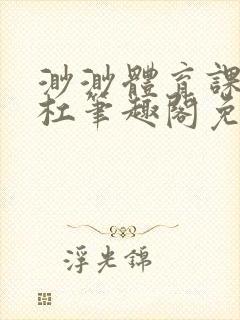 渺渺體育課
杜笔趣閣免
浮光錦